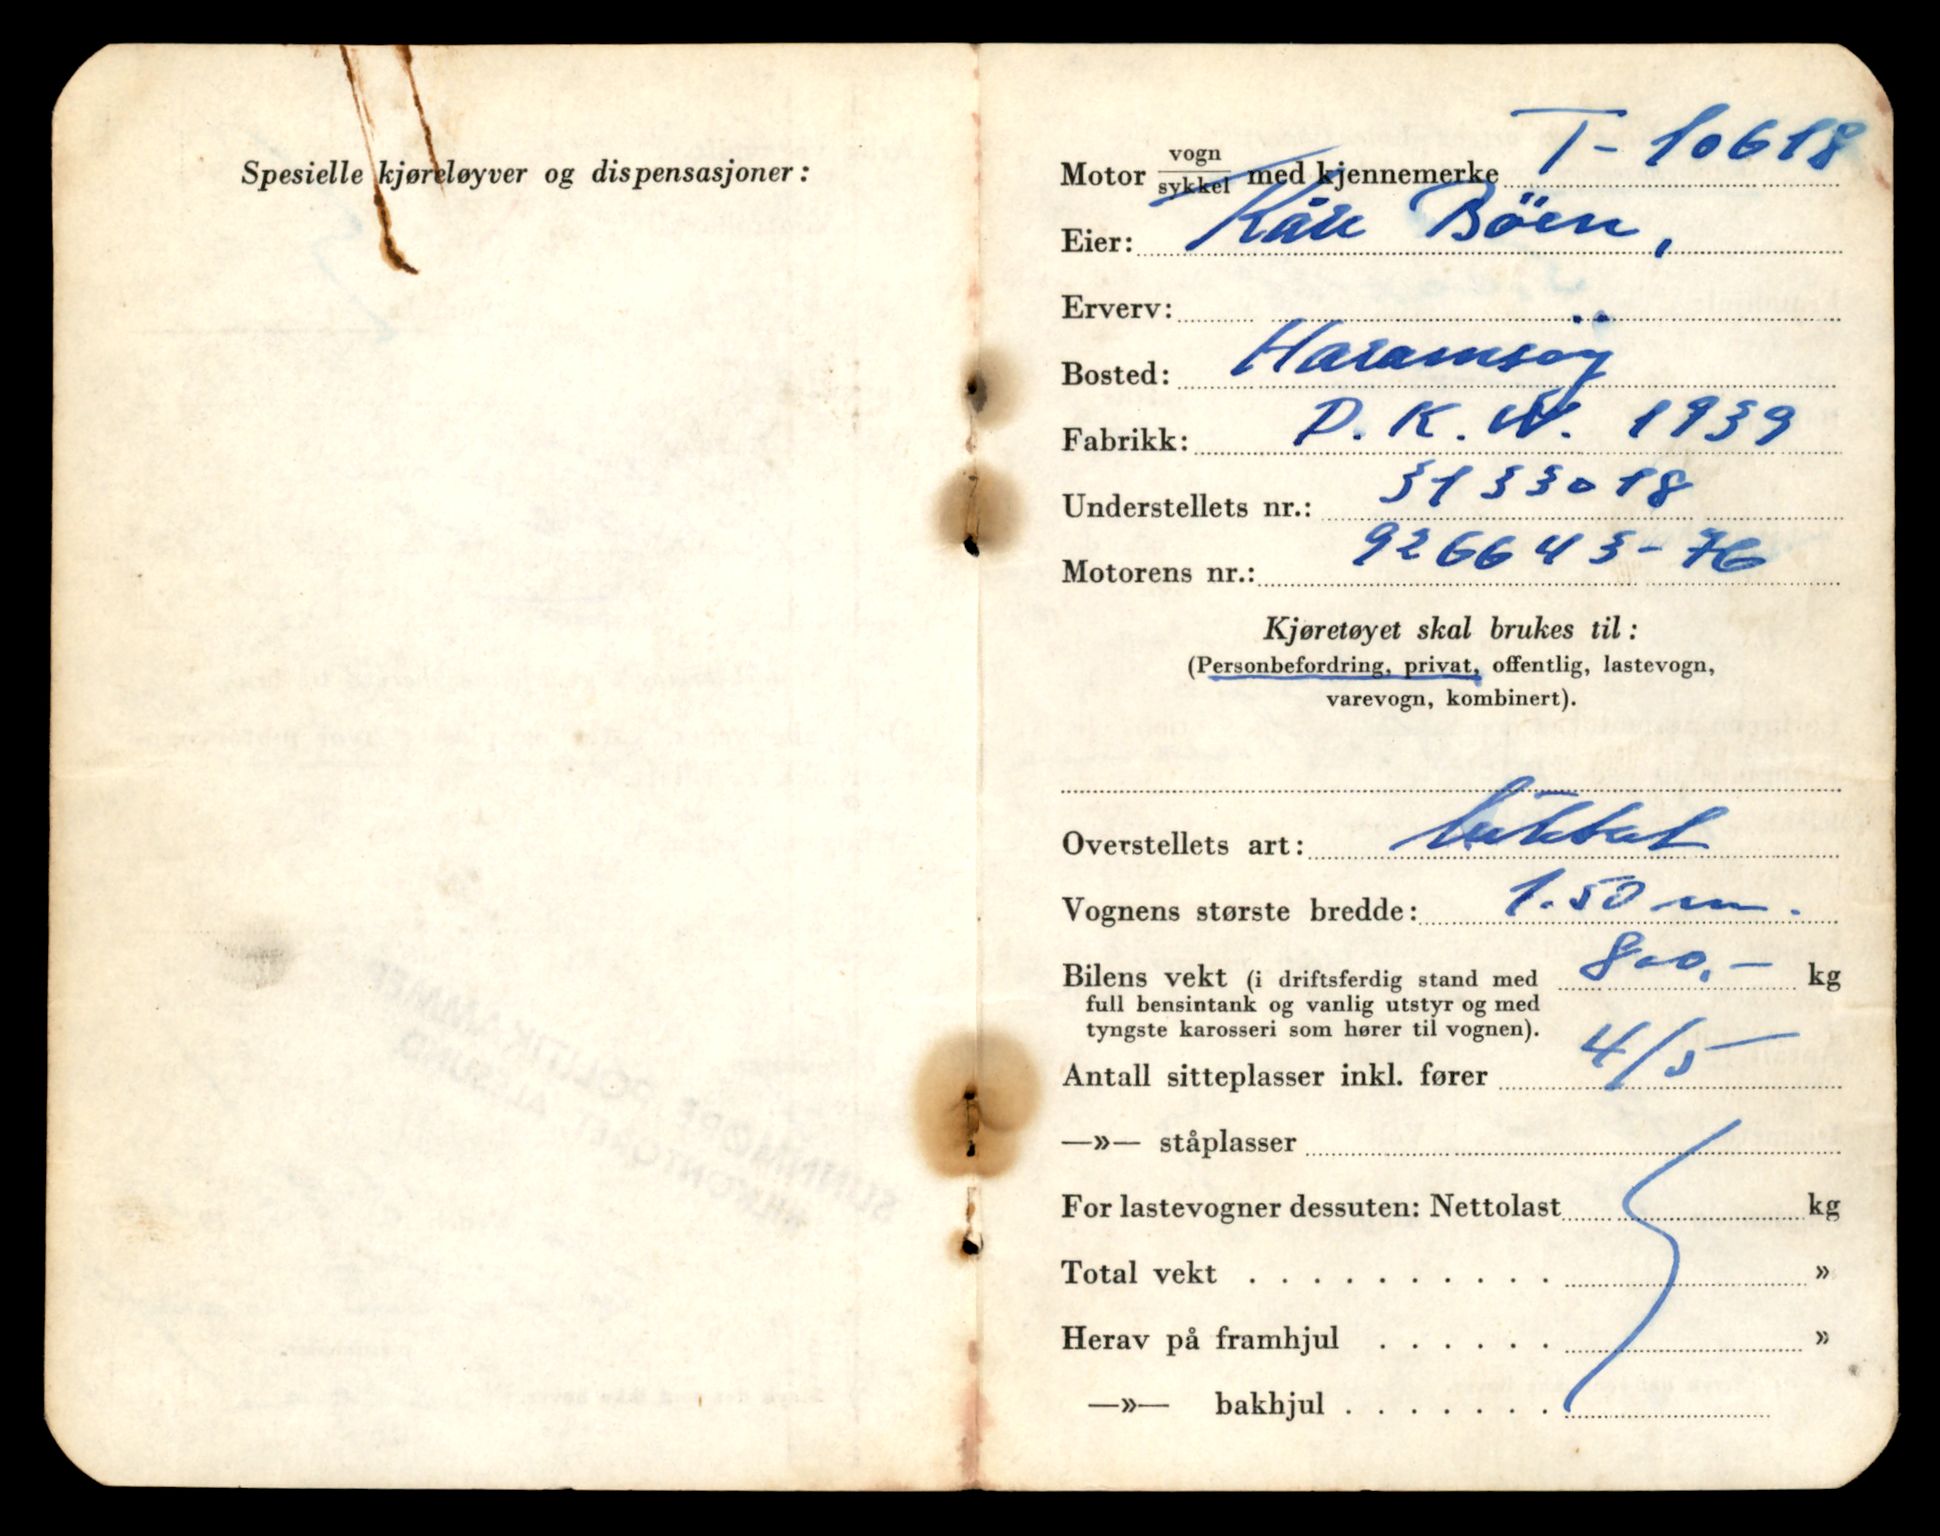 Spesielle kjøreløyver og dispensasjoner:
Motor vogn/sykkel med kjennemerke T-10618
Eier: Kåre Böen,
Erverv:
Bosted: Haramsöy
Fabrikk: D.K.W. 1939
Understellets nr.: 3133018
Motorens nr.: 926643-76
Kjøretøyet skal brukes til:
(Personbefordring, privat, offentlig, lastevogn,
varevogn, kombinert).
Overstellets art: lukket
Vognens største bredde: 1.50 m.
Bilens vekt (i driftsferdig stand med 800,- kg
full bensintank og vanlig utstyr og med
tyngste karosseri som hører til vognen).
Antall sitteplasser inkl. fører 4/5
—»— ståplasser
For lastevogner dessuten: Nettolast kg
Total vekt . . . . . . . . . . »
Herav på framhjul . . . . . . »
—»— bakhjul . . . . . . .